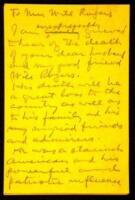 To Mrs Will Rogers
I am grieved
to hear of the death
of your dear husband
my good friend
Will Rogers.
His death will be
a great loss to the
country as well as
to his family and his
many friends
and admirers
He was a staunch
American and his
powerful and
patriotic influence